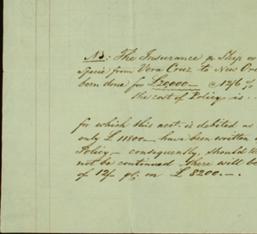 NB: The Insurance p Ship
Specie from Vera Cruz to New Or
been done for £20,000 — @ 12/6 p
the cost of Policy is
for which this acct. is debited as
only £ 11800 — have been written
Policy, — consequently, should th
not be continued there will be
of 12/ p%, on £ 8200. —.